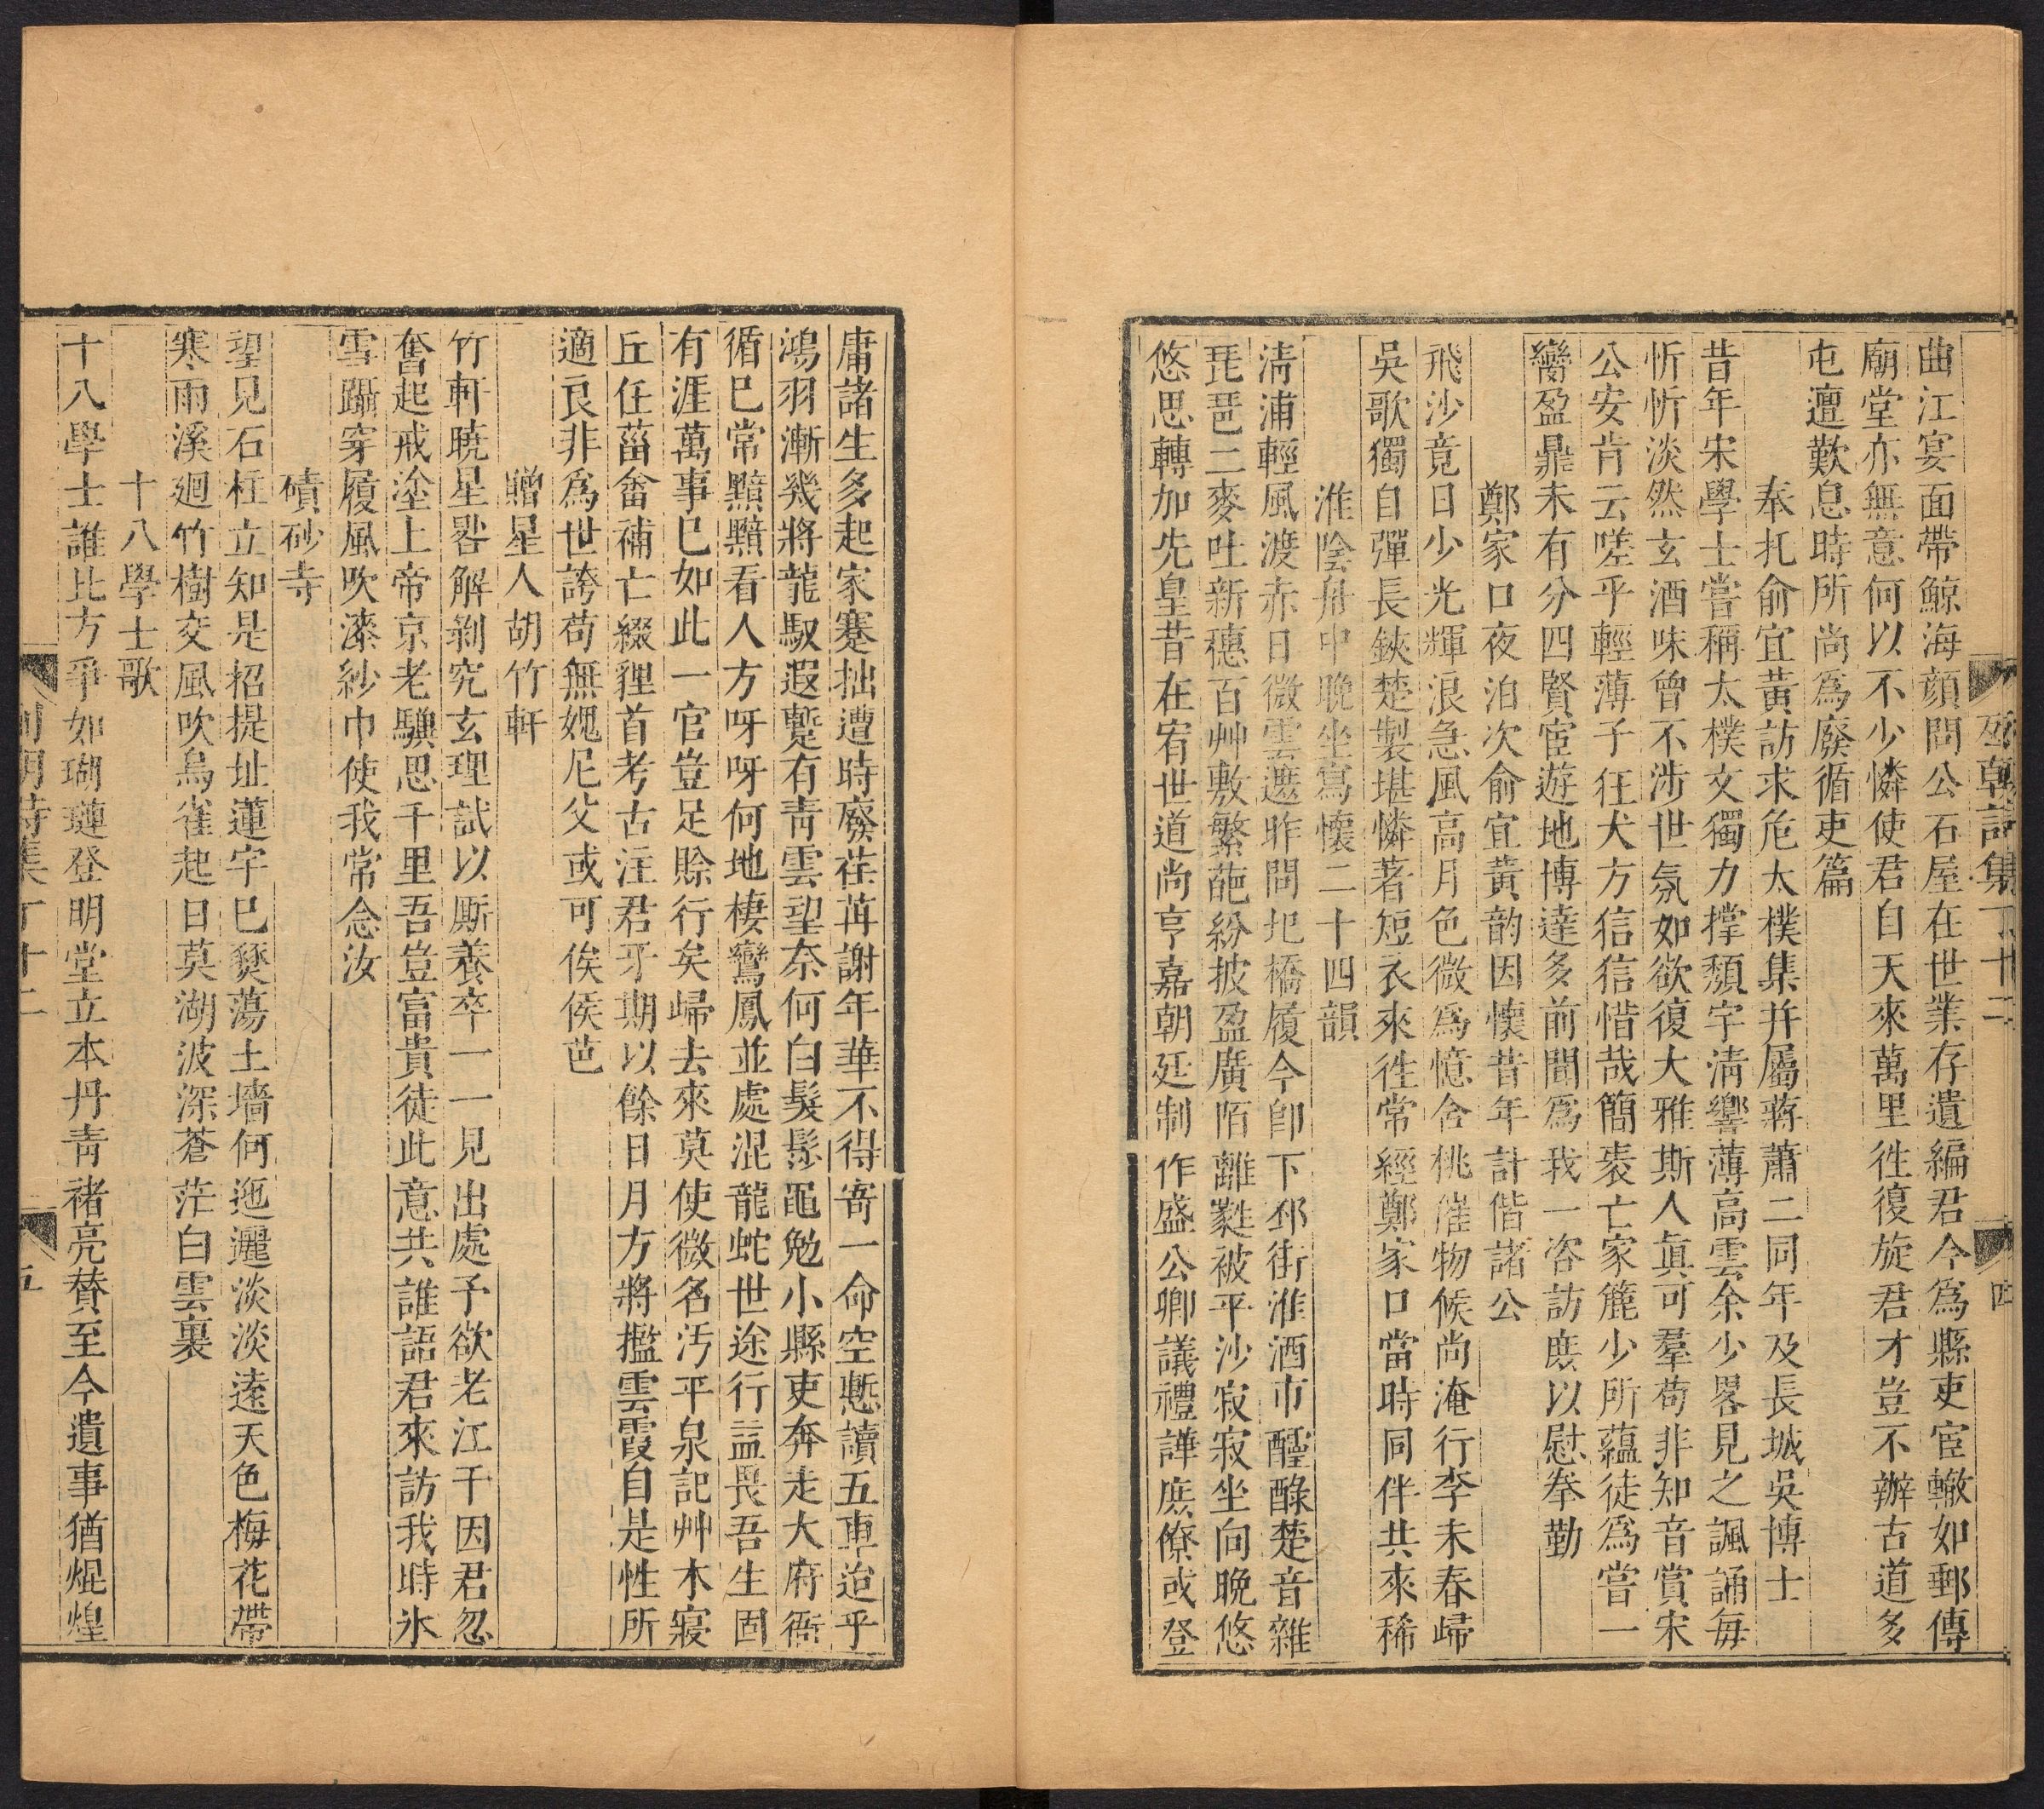 曲江宴面帶鯨海顏問公石屋在世業存遺編君今爲縣吏宦轍如郵傳
廟堂亦無意何以不少憐使君自天來萬里徃復旋君才豈不辦古道多
屯邅歎息時所尚爲廢循吏篇
奉扎俞宜黃訪求危太樸集并屬蔣蕭二同年及長城吳博士
昔年宋學士嘗稱太樸文獨力撑頹宇清響薄高雲余少畧見之諷誦每
忻忻淡然玄酒味曾不涉世氛如欲復大雅斯人眞可羣苟非知音賞宋
公安肯云嗟乎輕薄子狂犬方信信惜哉簡袠亡家簏少所蘊徒爲嘗一
臠盈鼎未有分四賢宦遊地博達多前聞爲我一咨訪庶以慰拳勤
鄭家口夜泊次俞宜黃韵因懷昔年計偕諸公
飛沙竟日少光輝浪急風高月色微爲憶含桃催物候尚淹行李未春歸
吳歌獨自彈長鋏楚製堪憐著短衣來徃常經鄭家口當時同伴共來稀
淮陰舟中晚坐寫懷二十四韻
清浦輕風渡赤日微雲遮昨問圯橋履今卽下邳街淮酒市醽醁楚音雜
琵琶二麥吐新穗百艸敷繁葩紛披盈廣陌離蓰被平沙寂寂坐向晚悠
悠思轉加先皇昔在宥世道尚亨嘉朝廷制作盛公卿議禮譁庶僚或登
列朝詩集 丁十二 四
庸諸生多起家蹇拙遭時廢荏苒謝年華不得寄一命空慙讀五車迨乎
鴻羽漸幾將龍馭遐蹔有靑雲望奈何白髮髿黽勉小縣吏奔走大府衙
循已常黯黮看人方呀呀何地棲鸞鳳並處混龍蛇世途行益畏吾生固
有涯萬事已如此一官豈足賒行矣歸去來莫使微名汚平泉記艸木寢
丘任菑畬補亡綴貍首考古注君牙期以餘日月方將搵雲霞自是性所
適良非爲世誇苟無媿尼父或可俟侯芭
贈星人胡竹軒
竹軒曉星曆解剝究玄理試以厮養卒一一見出處予欲老江干因君忽
奮起戒塗上帝京老驥思千里吾豈富貴徒此意共誰語君來訪我時氷
雪躡穿履風吹漆紗巾使我常念汝
磧砂寺
望見石柱立知是招提址蓮宇已燹蕩土墻何迤邐淡淡遠天色梅花帶
寒雨溪廻竹樹交風吹烏雀起日莫湖波深蒼茫白雲裏
十八學士歌
十八學士誰比方爭如瑚璉登明堂立本丹靑褚亮贊至今遺事猶焜煌
列朝詩集 丁十二 五